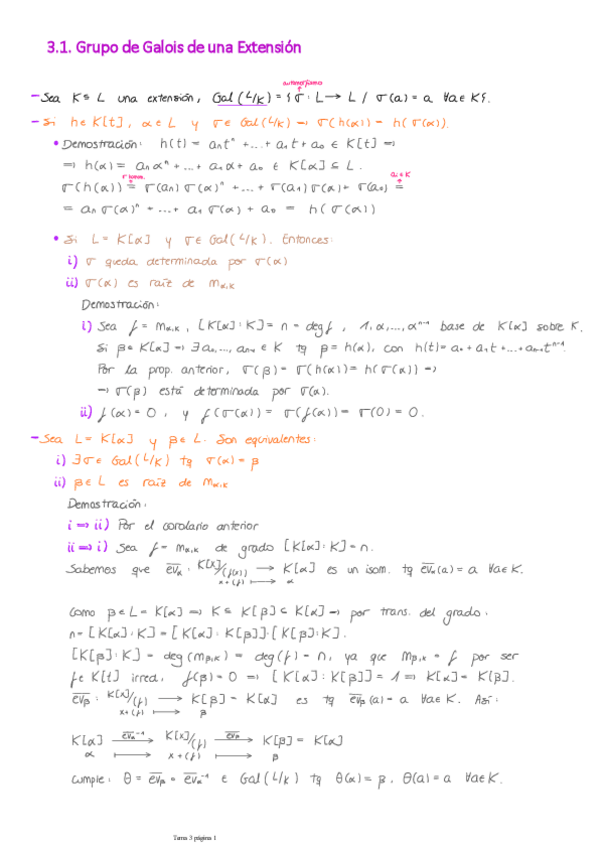 3.1. Grupo de Galois de una Extensión
automorfismo
– Sea K ⊆ L una extensión, Gal(L/K) = {σ: L → L / σ(a) = a ∀a∈K}.
– Si h∈K[t], α∈L y σ∈Gal(L/K) → σ(h(α)) = h(σ(α)).
• Demostración: h(t) = aₙtⁿ + ... + a₁t + a₀ ∈ K[t] ⇒
⇒ h(α) = aₙαⁿ + ... + a₁α + a₀ ∈ K[α] ⊆ L.
σ(h(α)) = σ(aₙ)σ(α)ⁿ + ... + σ(a₁)σ(α) + σ(a₀) =
= aₙσ(α)ⁿ + ... + a₁σ(α) + a₀ = h(σ(α))
• Si L = K[α] y σ∈Gal(L/K). Entonces:
i) σ queda determinada por σ(α)
ii) σ(α) es raíz de m_α,K
Demostración:
i) Sea f = m_α,K, [K[α]:K] = n = deg f, 1, α, ..., αⁿ⁻¹ base de K[α] sobre K.
Si β∈K[α] → ∃ a₀, ..., aₙ₋₁ ∈ K tq β = h(α), con h(t) = a₀ + a₁t + ... + aₙ₋₁tⁿ⁻¹.
Por la prop. anterior, σ(β) = σ(h(α)) = h(σ(α)) →
→ σ(β) está determinada por σ(α).
ii) f(α) = 0, y f(σ(α)) = σ(f(α)) = σ(0) = 0.
– Sea L = K[α] y β∈L. Son equivalentes:
i) ∃σ∈Gal(L/K) tq σ(α) = β
ii) β∈L es raíz de m_α,K
Demostración:
i ⇒ ii) Por el corolario anterior
ii ⇒ i) Sea f = m_α,K de grado [K[α]:K] = n.
Sabemos que ev̅_α : K[x]/(f(x)) → K[α] es un isom. tq ev̅_α(a) = a ∀a∈K.
x + (f) ↦ α
Como β∈L = K[α] ⇒ K ⊆ K[β] ⊆ K[α] → por trans. del grado:
n = [K[α]:K] = [K[α]:K[β]]·[K[β]:K].
[K[β]:K] = deg(m_β,K) = deg(f) = n, ya que m_β,K = f por ser
f∈K[t] irred., f(β) = 0 ⇒ [K[α]:K[β]] = 1 ⇒ K[α] = K[β].
ev̅_β : K[x]/(f) → K[β] = K[α] es tq ev̅_β(a) = a ∀a∈K. Así:
x + (f) ↦ β
K[α] —ev̅_α⁻¹→ K[x]/(f) —ev̅_β→ K[β] = K[α]
α ↦ x + (f) ↦ β
Cumple: θ = ev̅_β ∘ ev̅_α⁻¹ ∈ Gal(L/K) tq θ(α) = β, θ(a) = a ∀a∈K.
Tema 3 página 1